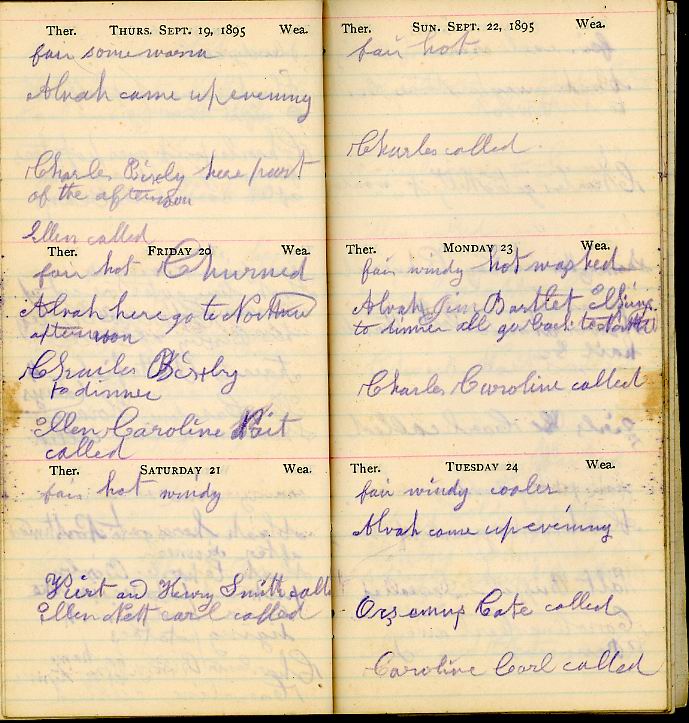 Ther. THURS. SEPT. 19, 1895 Wea.
fair some warm
Alvah came up evening
Charles Bixby here part
of the afternoon
Ellen called
Ther. FRIDAY 20 Wea.
fair hot Churned
Alvah here go to
afternoon
Charles Bixby
to dinner
Ellen Caroline
called
Ther. SATURDAY 21 Wea.
fair hot windy
and Henry Smith called
Ellen Nett carl called
Ther. SUN. SEPT. 22, 1895 Wea.
fair hot
Charles called
Ther. MONDAY 23 Wea.
fair windy hot washed
Alvah Jim Bartlet
to dinner all go back to
Charles Caroline called
Ther. TUESDAY 24 Wea.
fair windy cooler
Alvah came up evening
Orsemus Cate called
Caroline Carl called